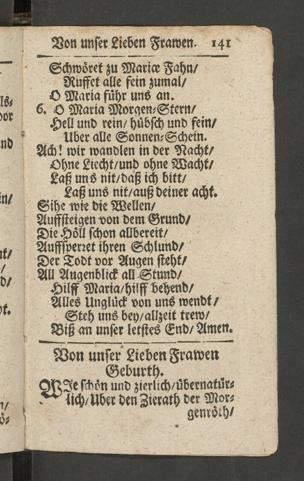 Von unser Lieben Frawen. 141
Schwöret zu Mariæ Fahn/
Ruffet alle fein zumal/
O Maria führ uns an.
6. O Maria Morgen-Stern/
Hell und rein/ hübsch und fein/
Uber alle Sonnen-Schein.
Ach! wir wandlen in der Nacht/
Ohne Liecht/und ohne Wacht/
Laß uns nit/daß ich bitt/
Laß uns nit/auß deiner acht.
Sihe wie die Wellen/
Auffsteigen von dem Grund/
Die Höll schon allbereit/
Auffsperret ihren Schlund/
Der Todt vor Augen steht/
All Augenblick all Stund/
Hilff Maria/hilff behend/
Alles Unglück von uns wendt/
Steh uns bey/allzeit trew/
Biß an unser letstes End/ Amen.
Von unser Lieben Frawen
Geburth.
WJe schön und zierlich/übernatür-
lich/Uber den Zierath der Mor-
genröth/